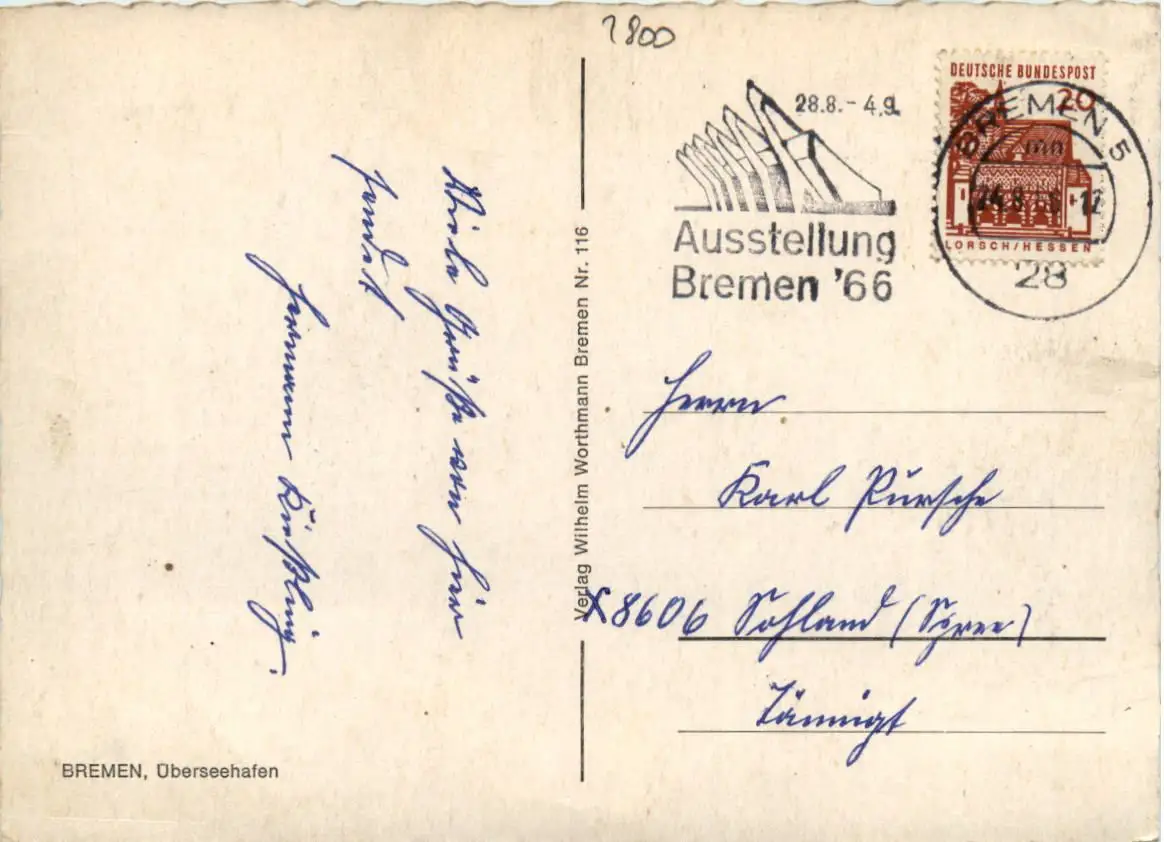 2800
DEUTSCHE BUNDESPOST
20
LORSCH/HESSEN
BREMEN 5
28
28.8. - 4.9.
Ausstellung
Bremen '66
Viele Grüße von hier
sendet
Hermann Kießling.
Verlag Wilhelm Worthmann Bremen Nr. 116
Herrn
Karl Pursche
X8606 Sohland (Spree)
Tännigt
BREMEN, Überseehafen